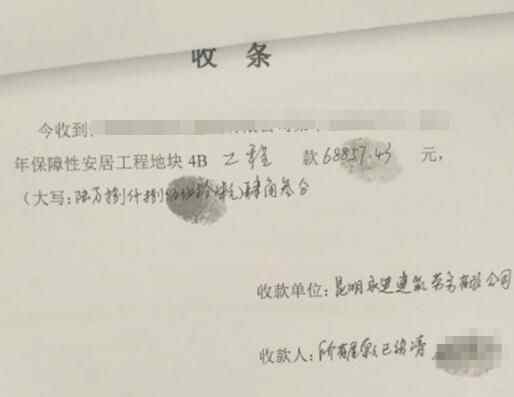 收 条
今收到
年保障性安居工程地块4B 工程 款68857.43 元,
(大写:陆万捌仟捌 肆角叁分
收款单位:昆明永建建筑劳务有限公司
收款人:所有 款已结清